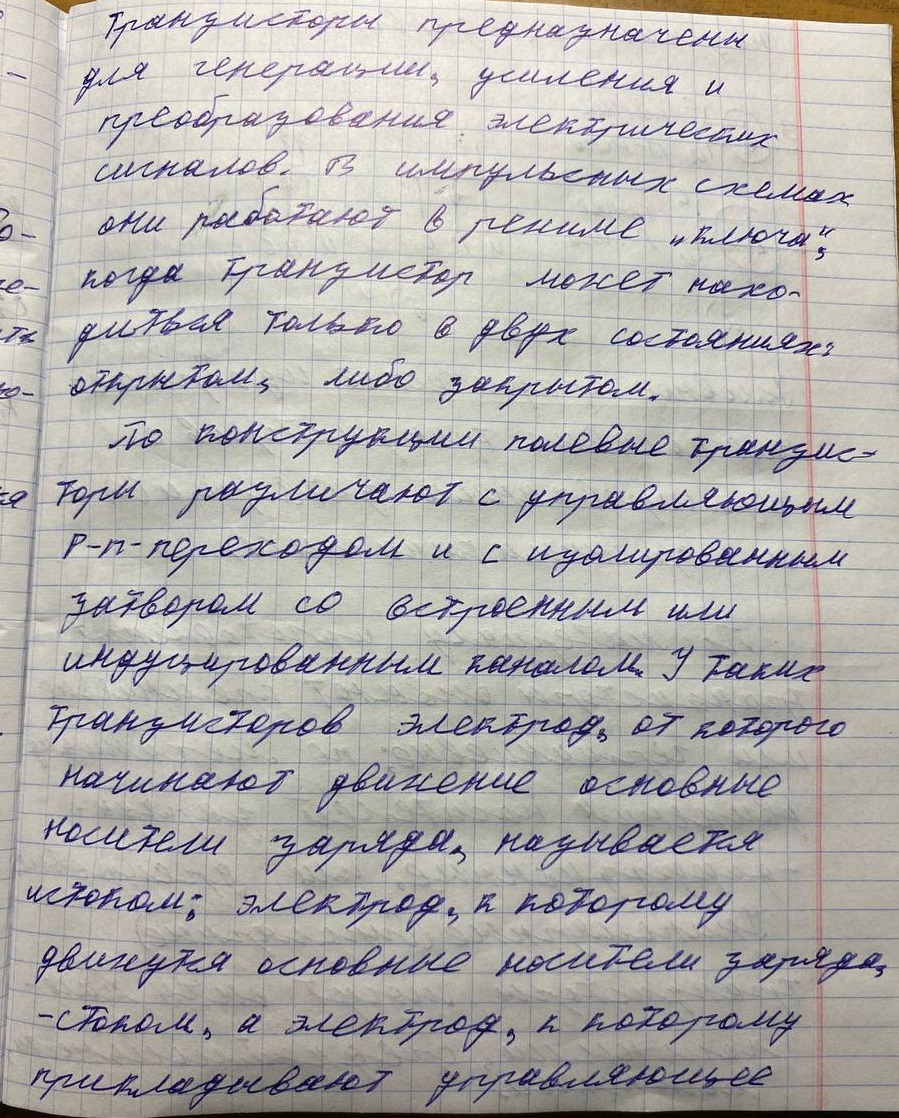 Транзисторы предназначены
для генерации, усиления и
преобразования электрических
сигналов. В импульсных схемах
они работают в режиме „ключа“,
когда транзистор может нахо-
диться только в двух состояниях:
открытом, либо закрытом.
По конструкции полевые транзис-
торы различают с управляющим
p-n-переходом и с изолированным
затвором со встроенным или
индуцированным каналом. У таких
транзисторов электрод, от которого
начинают движение основные
носители заряда, называется
истоком; электрод, к которому
движутся основные носители заряда,
-стоком, а электрод, к которому
прикладывают управляющее